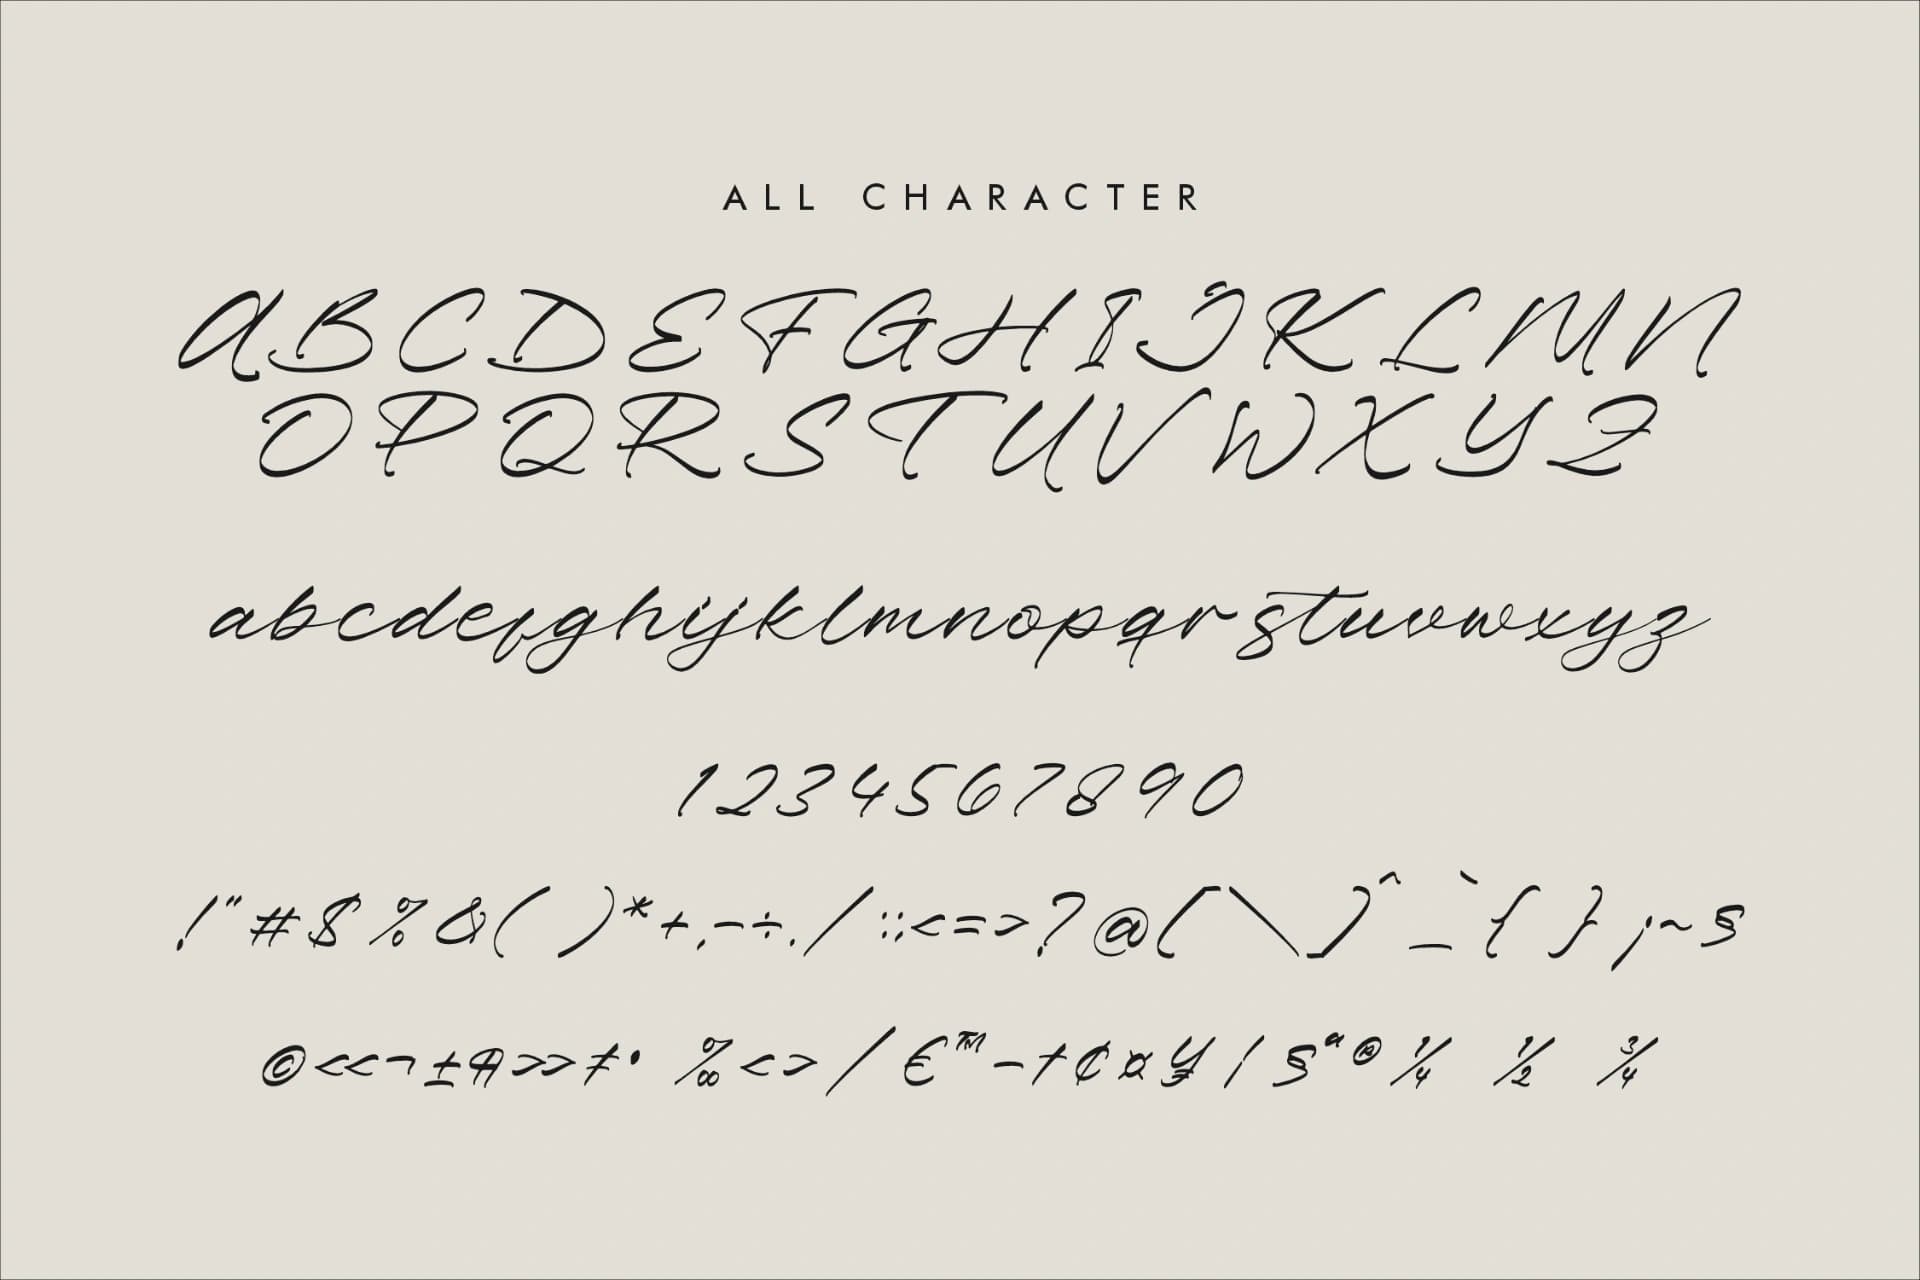 ALL CHARACTER
ABCDEFGHIJKLMN
OPQRSTUVWXYZ
abcdefghijklmnopqrstuvwxyz
1234567890
!"#$%&()*+,-÷./:;<=>?@[\]^_`{}¡~§
©<<¬±¶>>‡•‰<>/€™–†¢¤¥|§ª®¼ ½ ¾